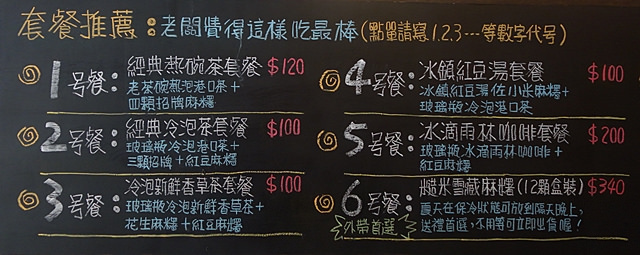 套餐推薦：老闆覺得這樣吃最棒(點單請寫1.2.3…等數字代号)
1号餐：經典熱碗茶套餐 $120
老茶碗熱泡港口茶+
四顆招牌麻糬
2号餐：經典冷泡茶套餐 $100
玻璃瓶冷泡港口茶+
三顆招牌+紅豆麻糬
3号餐：冷泡新鮮香草茶套餐 $100
玻璃瓶冷泡新鮮香草茶+
花生麻糬+紅豆麻糬
4号餐：冰鎮紅豆湯套餐 $100
冰鎮紅豆湯佐小米麻糬+
玻璃瓶冷泡港口茶
5号餐：冰滴雨林咖啡套餐 $200
玻璃瓶冰滴雨林咖啡+
紅豆麻糬
6号餐：冰雪藏麻糬(12顆盒裝) $340
外帶首選
夏天在保冷狀態可放到隔天晚上,
送禮首選,不用等可立即出貨喔!